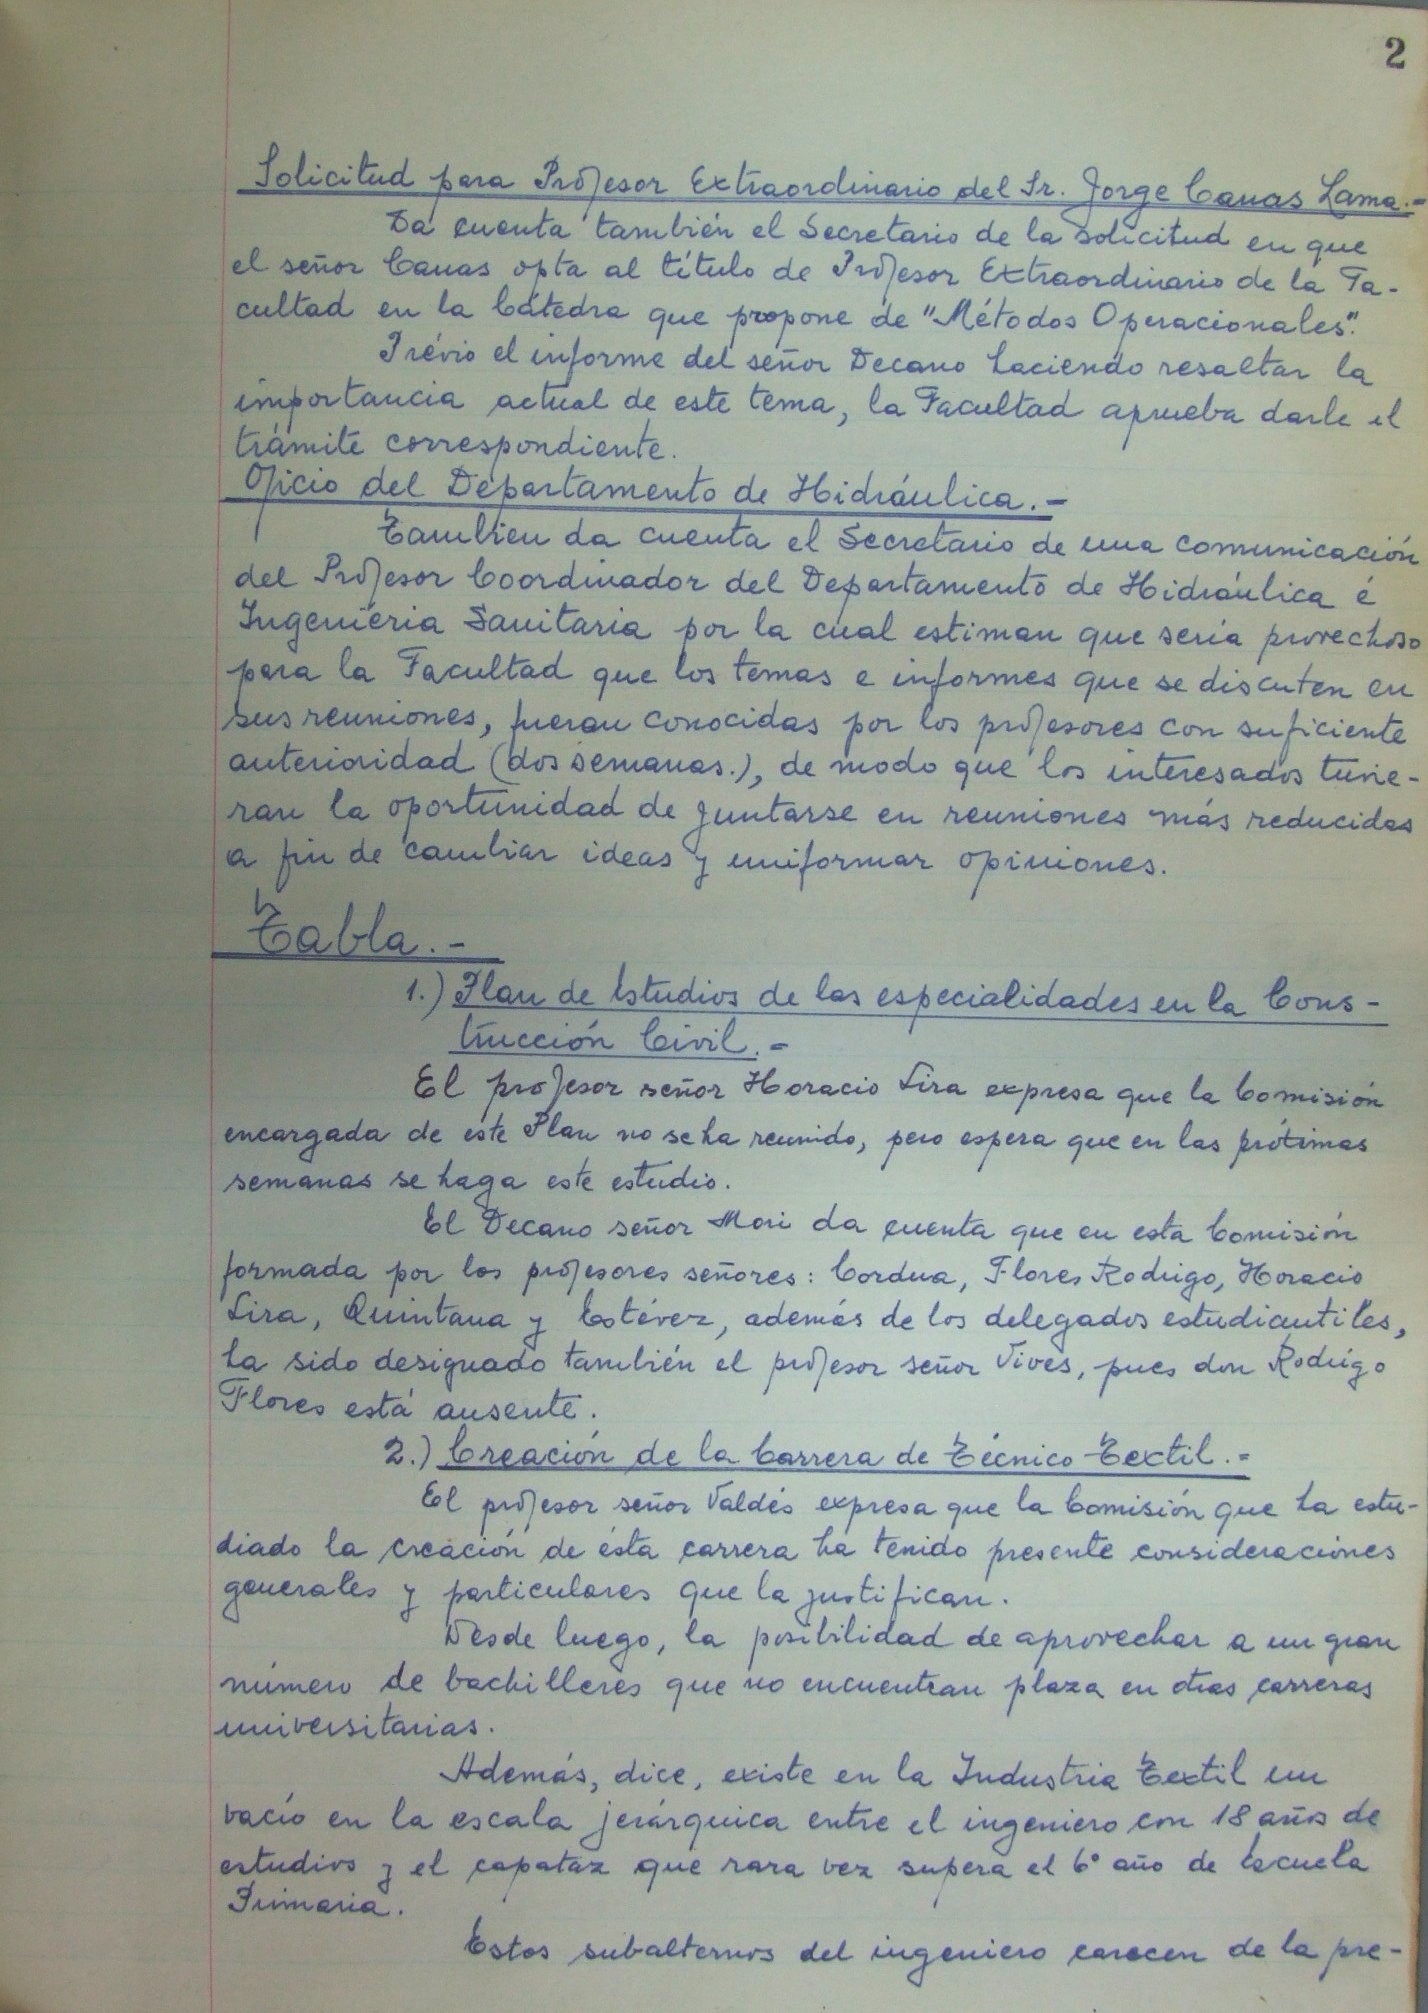 2
Solicitud para Profesor Extraordinario del Sr. Jorge Canas Lama.-
Da cuenta también el Secretario de la solicitud en que
el señor Canas opta al título de Profesor Extraordinario de la Fa-
cultad en la Cátedra que propone de "Métodos Operacionales".
Prévio el informe del señor Decano haciendo resaltar la
importancia actual de este tema, la Facultad aprueba darle el
trámite correspondiente.
Oficio del Departamento de Hidráulica.-
Tambien da cuenta el Secretario de una comunicación
del Profesor Coordinador del Departamento de Hidráulica é
Ingeniería Sanitaria por la cual estiman que sería provechoso
para la Facultad que los temas e informes que se discuten en
sus reuniones, fueran conocidas por los profesores con suficiente
anterioridad (dos semanas.), de modo que los interesados tuvie-
ran la oportunidad de juntarse en reuniones más reducidas
a fin de cambiar ideas y uniformar opiniones.
Tabla.-
1.) Plan de Estudios de las especialidades en la Cons-
trucción Civil.-
El profesor señor Horacio Lira expresa que la Comisión
encargada de este Plan no se ha reunido, pero espera que en las próximas
semanas se haga este estudio.
El Decano señor Mori da cuenta que en esta Comisión
formada por los profesores señores: Cordua, Flores Rodrigo, Horacio
Lira, Quintana y Estévez, además de los delegados estudiantiles,
ha sido designado también el profesor señor Vives, pues don Rodrigo
Flores está ausente.
2.) Creación de la Carrera de Técnico Textil.-
El profesor señor Valdés expresa que la Comisión que ha estu-
diado la creación de ésta carrera ha tenido presente consideraciones
generales y particulares que la justifican.
Desde luego, la posibilidad de aprovechar a un gran
número de bachilleres que no encuentran plaza en otras carreras
universitarias.
Además, dice, existe en la Industria Textil un
vacío en la escala jerárquica entre el ingeniero con 18 años de
estudios y el capataz que rara vez supera el 6° año de Escuela
Primaria.
Estos subalternos del ingeniero carecen de la pre-